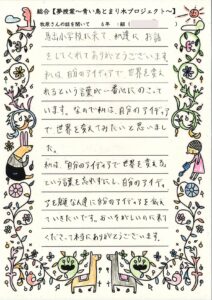 総合【夢授業~青い鳥とまり木プロジェクト~】
牧原さんの話を聞いて 6年 組(
島山小学校に来て、私達に、お話
をしてくれてありがとうございます。
私は、自分のアイディアで世界を変え
れるという言葉が一番心にのこって
います。なので私は、自分のアイディア
で世界を変えてみたいと思いまし
た。
私は、「自分のアイディアで世界を変える」
という言葉を忘れずに、自分のアイディ
アを
人達に自分のアイディアを伝え
ていきたいです。おいそがしいのに来て
くださって本当にありがとうございます。